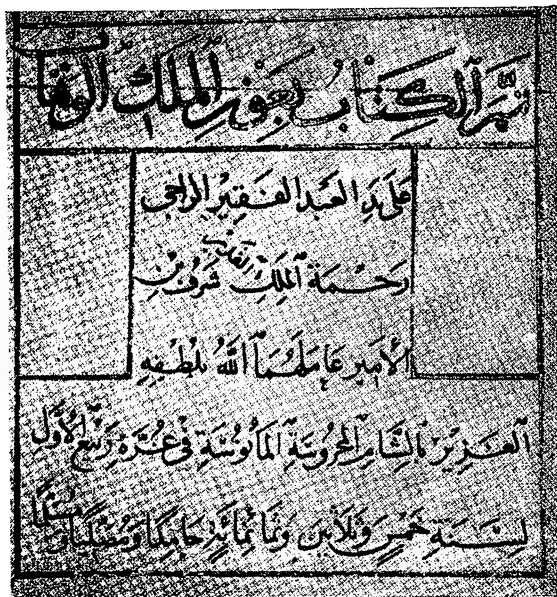 تم الكتاب بعون الملك الوهاب
على يد العبد الفقير الراجى
رحمة الملك شرف بن
الأمير عاملهما الله بلطفه
العزيز بالشام المحروسة المأنوسة فى غرة ربيع الاول
لسنة خمس وثلاثين وثمانمائة حامدا ومصليا ومسلما